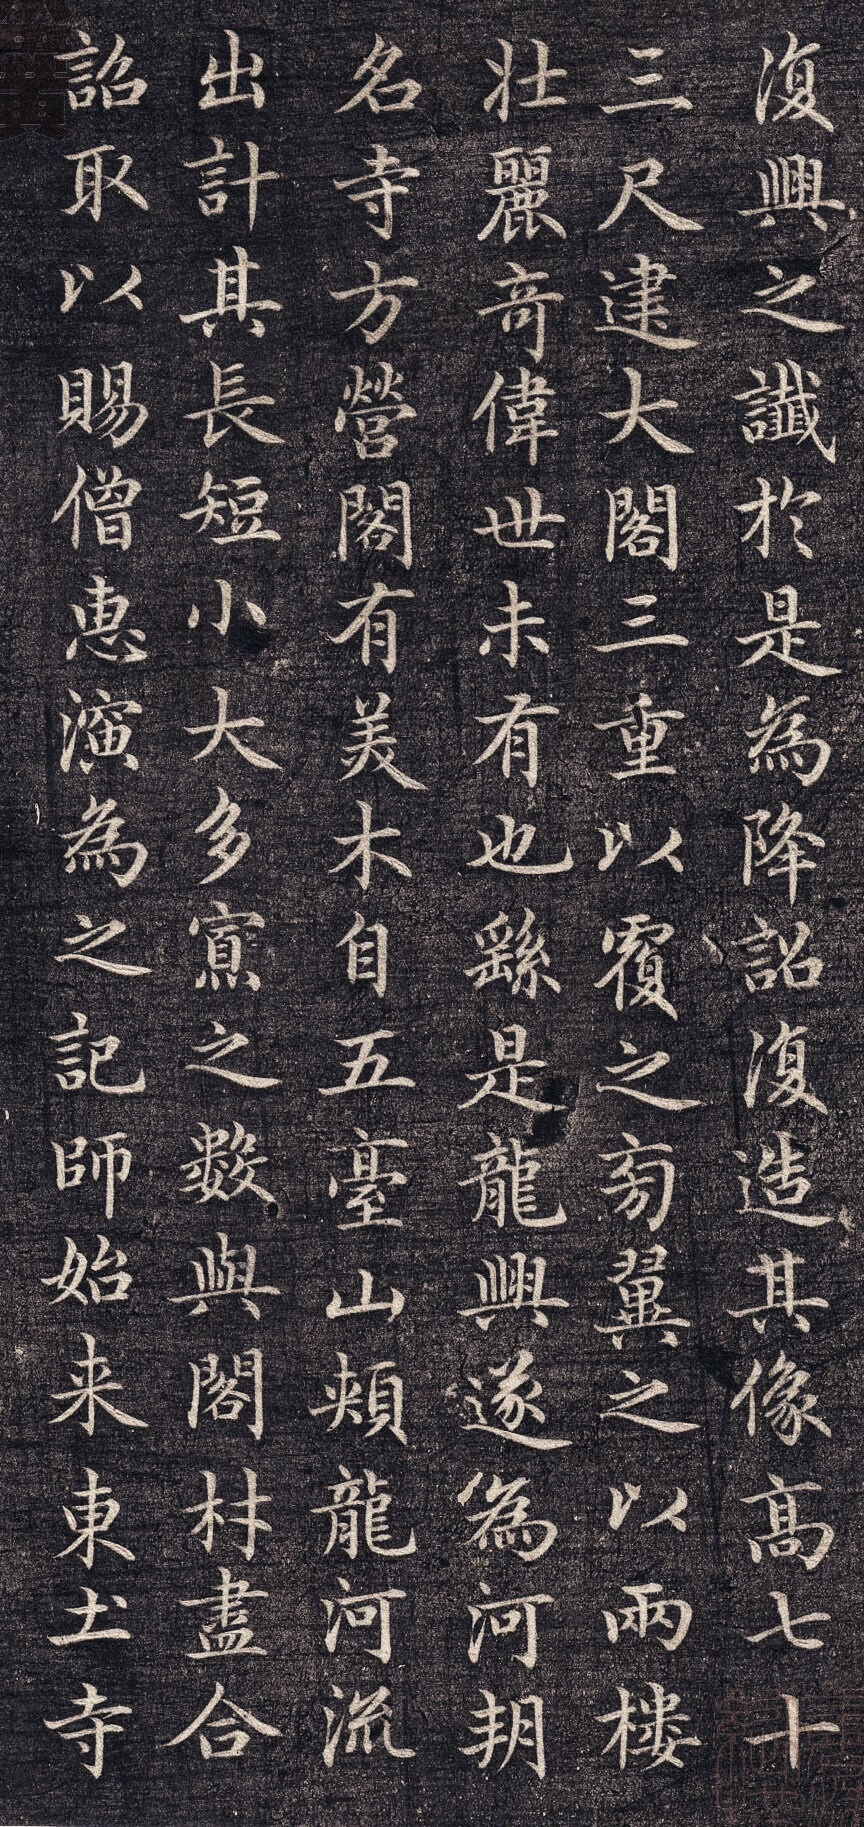 復興之讖於是為降詔復造其像高七十
三尺建大閣三重以覆之旁翼之以兩樓
壯麗奇偉世未有也繇是龍興遂為河朔
名寺方營閣有美木自五臺山頰龍河流
出計其長短小大多寡之數與閣材盡合
詔取以賜僧惠演為之記師始来東土寺